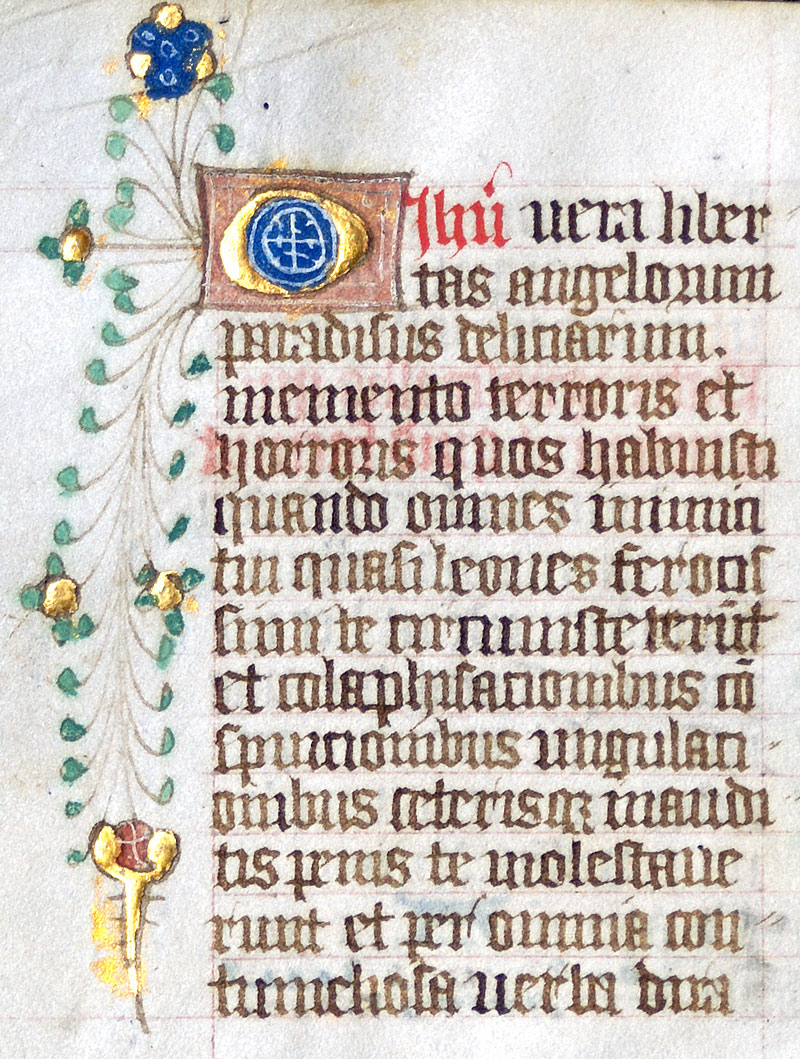 O Ihū vera liber
tas angelorum
paradisus deliciarum.
memento terroris et
horroris quos habuisti
quando omnes inimici
tui quasi leones ferocis
simi te circumsteterūt
et colaphisacionibus cō
spuicionibus ungulaci
onibus ceterisqꝫ inaudi
tis penis te molestave
runt et per omnia con
tumeliosa verba dira